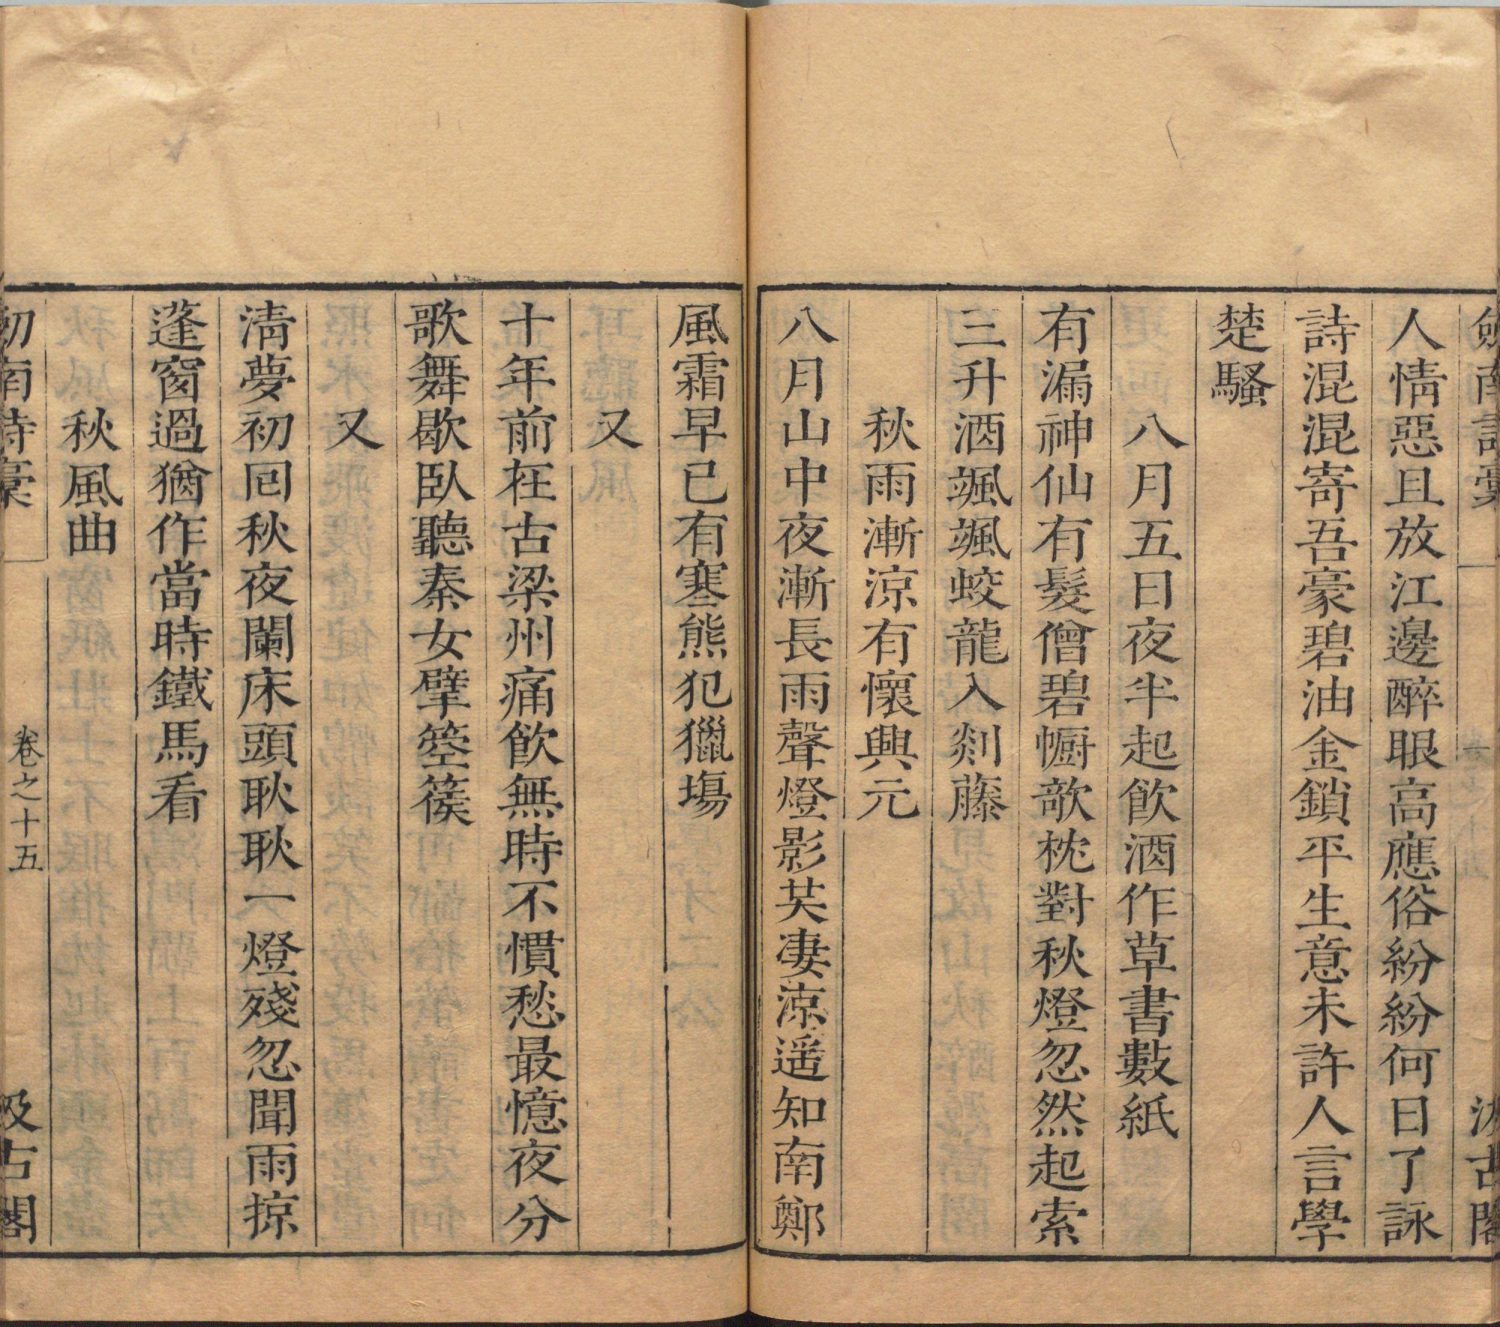 劒南詩稾
汲古閣
人情惡且放江邊醉眼高應俗紛紛何日了詠
詩混混寄吾豪碧油金鎖平生意未許人言學
楚騷
八月五日夜半起飲酒作草書數紙
有漏神仙有髮僧碧㡡攲枕對秋燈忽然起索
三升酒颯颯蛟龍入剡藤
秋雨漸涼有懷興元
八月山中夜漸長雨聲燈影共凄涼遥知南鄭
風霜早已有寒熊犯獵塲
又
十年前在古梁州痛飲無時不慣愁最憶夜分
歌舞歇臥聽秦女擘箜篌
又
清夢初回秋夜闌床頭耿耿一燈殘忽聞雨掠
蓬窗過猶作當時鐵馬看
秋風曲
劒南詩稾
卷之十五
汲古閣